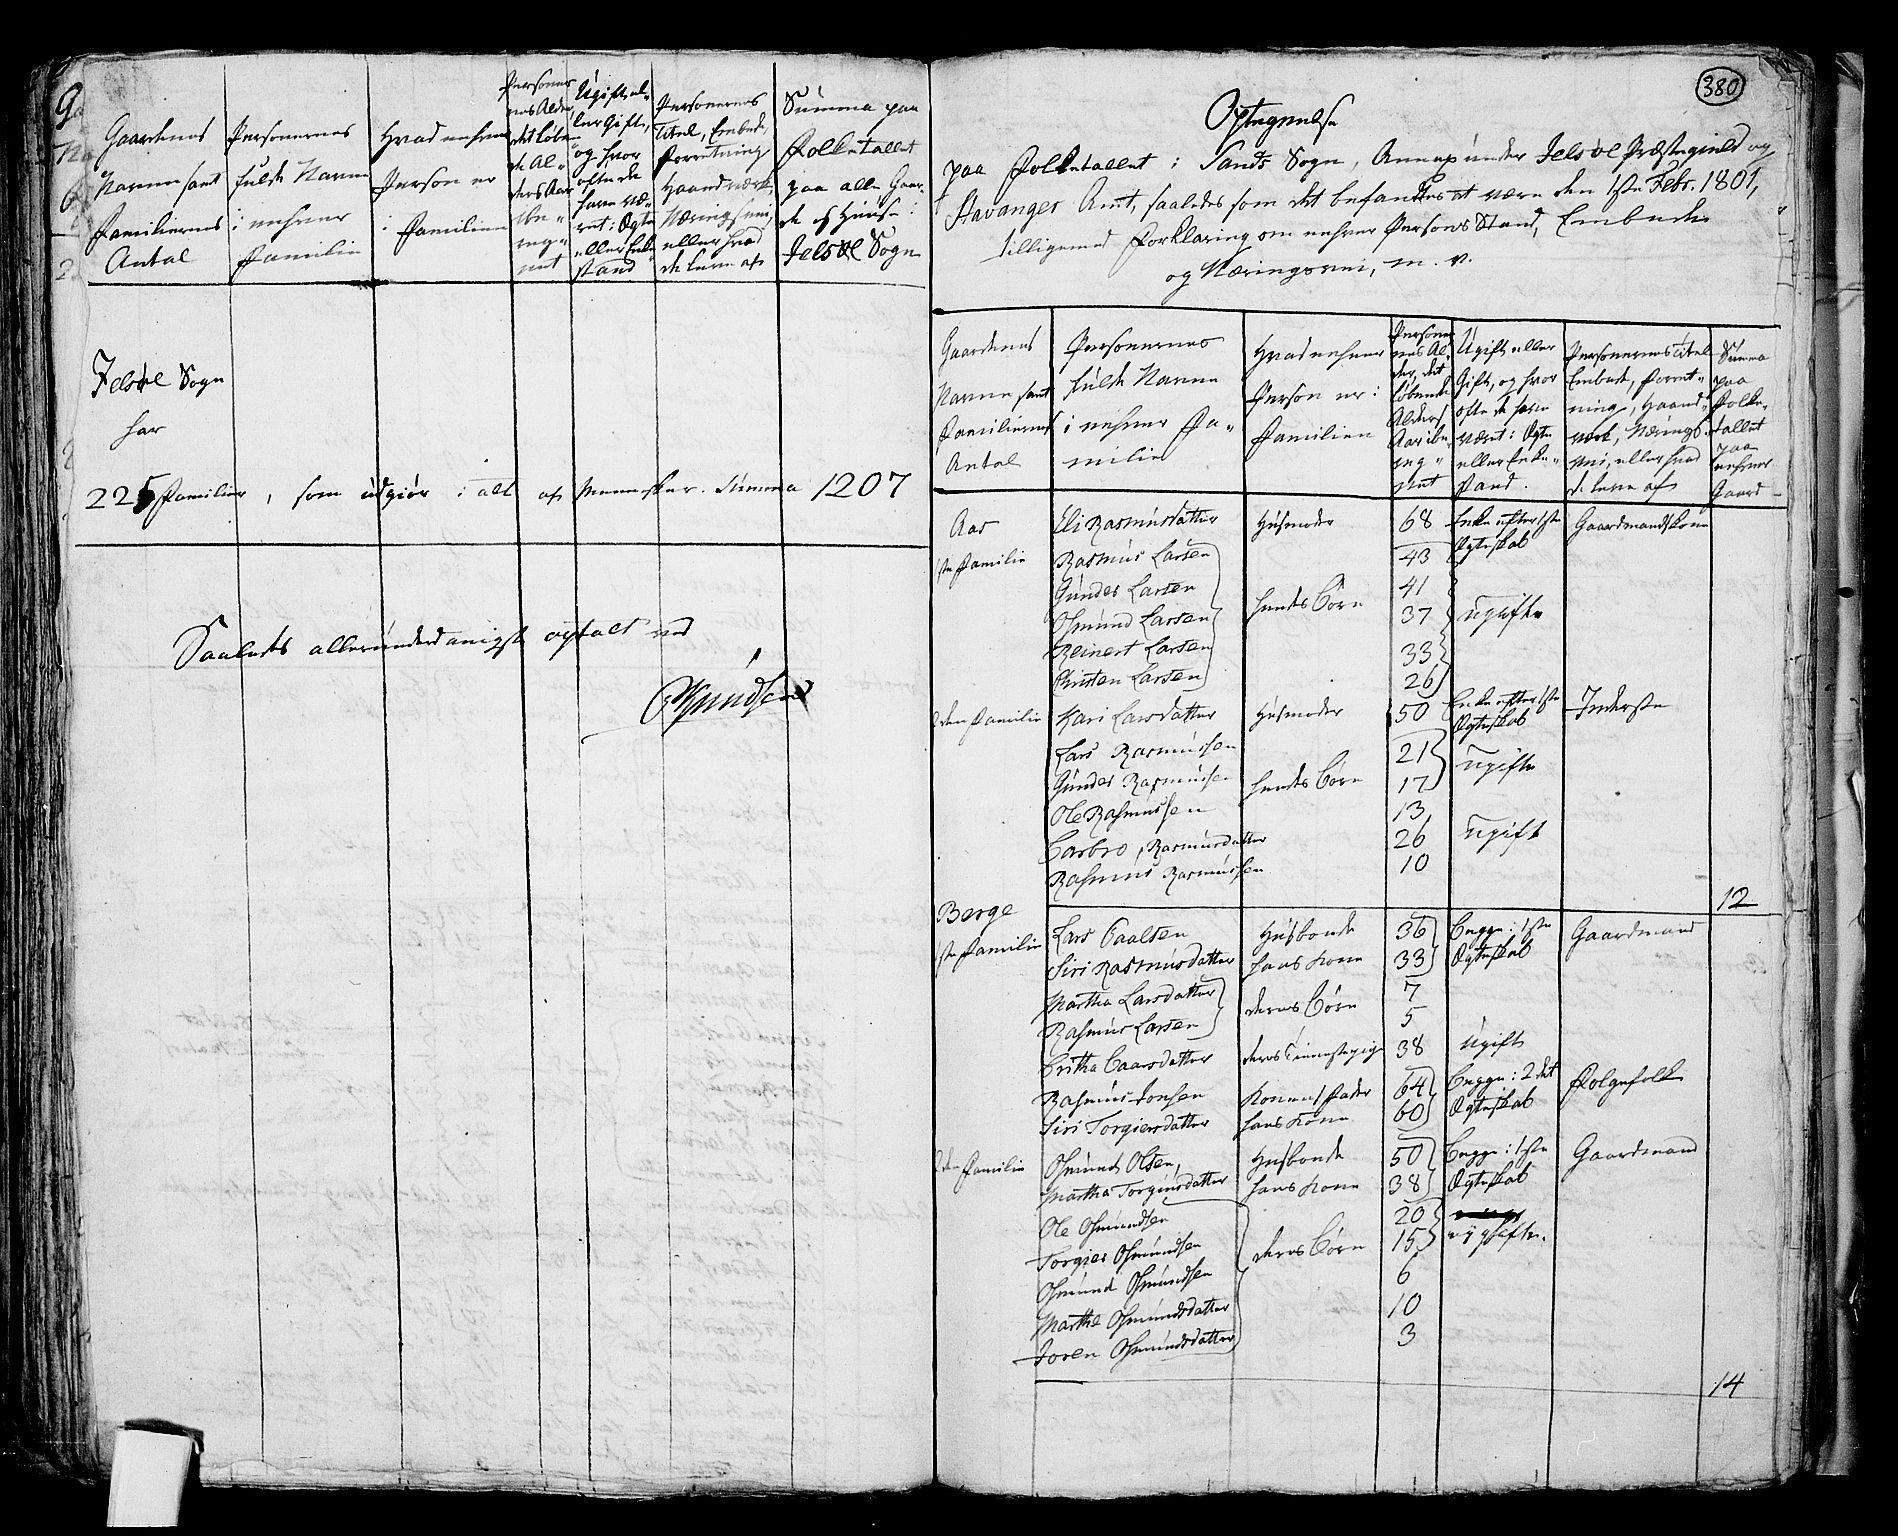 Gaardenes
Navne samt
Familiernes
Antal
Personernes
fulde Navne
i enhver
Familie
Hvad enhver
Person er
i Familien
Personer-
nes Alder,
det løben-
de Al-
ders Aar
ibe-
reg-
net
Ugift el-
ler Gift,
og hvor
ofte de
have væ-
ret i Ægte
eller Enke
stand
Personernes
Titel, Embede,
Forretning
Haandværk,
Næringsvei,
eller hvad
de leve af
Summa paa
Folketallet
paa alle Gaar-
de og Huuse i
Jelsøe Sogn
Jelsøe Sogn
har
225 Familier, som udgiør i alt af Mennesker. Summa 1207
Saaledes allerunderdanigst optalt ved
Knudsen
380
Optegnelse
paa Folketallet i Sands Sogn, Annex under Jelsøe Præstegield og
Stavanger Amt, saaledes som det befandtes at være den 1ste Febr. 1801,
tilligemed Forklaring om enhver Persons Stand, Embede
og Næringsvei, m. v.
Gaardenes
Navne samt
Familiernes
Antal
Personernes
fulde Navne
i enhver Fa-
milie
Hvad enhver
Person er i
Familien
Personer-
nes Al-
der, det
løbende
Alders
Aar ibe-
reg-
net
Ugift eller
Gift, og hvor
ofte de have
været i Ægte
eller Enke-
stand.
Personernes Titel
Embede, Forret-
ning, Haand-
værk, Nærings-
vei, eller hvad
de leve af
Summa
paa
Folke-
tallet
paa
enhver
Gaard
Aar Eli Rasmusdatter Husmoder 68 Enke efter 1ste Gaardmandskone
Ægteskab
1ste Familie Rasmus Larsen 43
Gunder Larsen 41
Osmund Larsen hendes Børn 37 ugifte
Reinert Larsen 33
Christen Larsen 26
2den Familie Kari Larsdatter Husmoder 50 Enke efter 1ste Inderste
Ægteskab
Lars Rasmussen 21 ugifte
Gunder Rasmussen hendes Børn 17
Ole Rasmussen 13
Barbro Rasmusdatter 26 ugift
Rasmus Rasmussen 10
12
Berge
1ste Familie Lars Paalsen Husbonde 36 Begge i 1ste Gaardmand
Siri Rasmusdatter hans Kone 33 Ægteskab
Martha Larsdatter deres Børn 7
Rasmus Larsen 5
Britha Baarsdatter deres Tienestepige 38 Ugift
Rasmus Jonsen Konens Fader 64 Begge i 2det Folgefolk
Siri Torgiersdatter hans Kone 60 Ægteskab
2den Familie Osmund Olsen Husbonde 50 Begge i 1ste Gaardmand
Martha Torgiersdatter hans Kone 38 Ægteskab
Ole Osmundsen 20
Torgier Osmundsen deres Børn 15 ugifte.
Osmund Osmundsen 6
Marthe Osmundsdatter 10
Joren Osmundsdatter 3
14